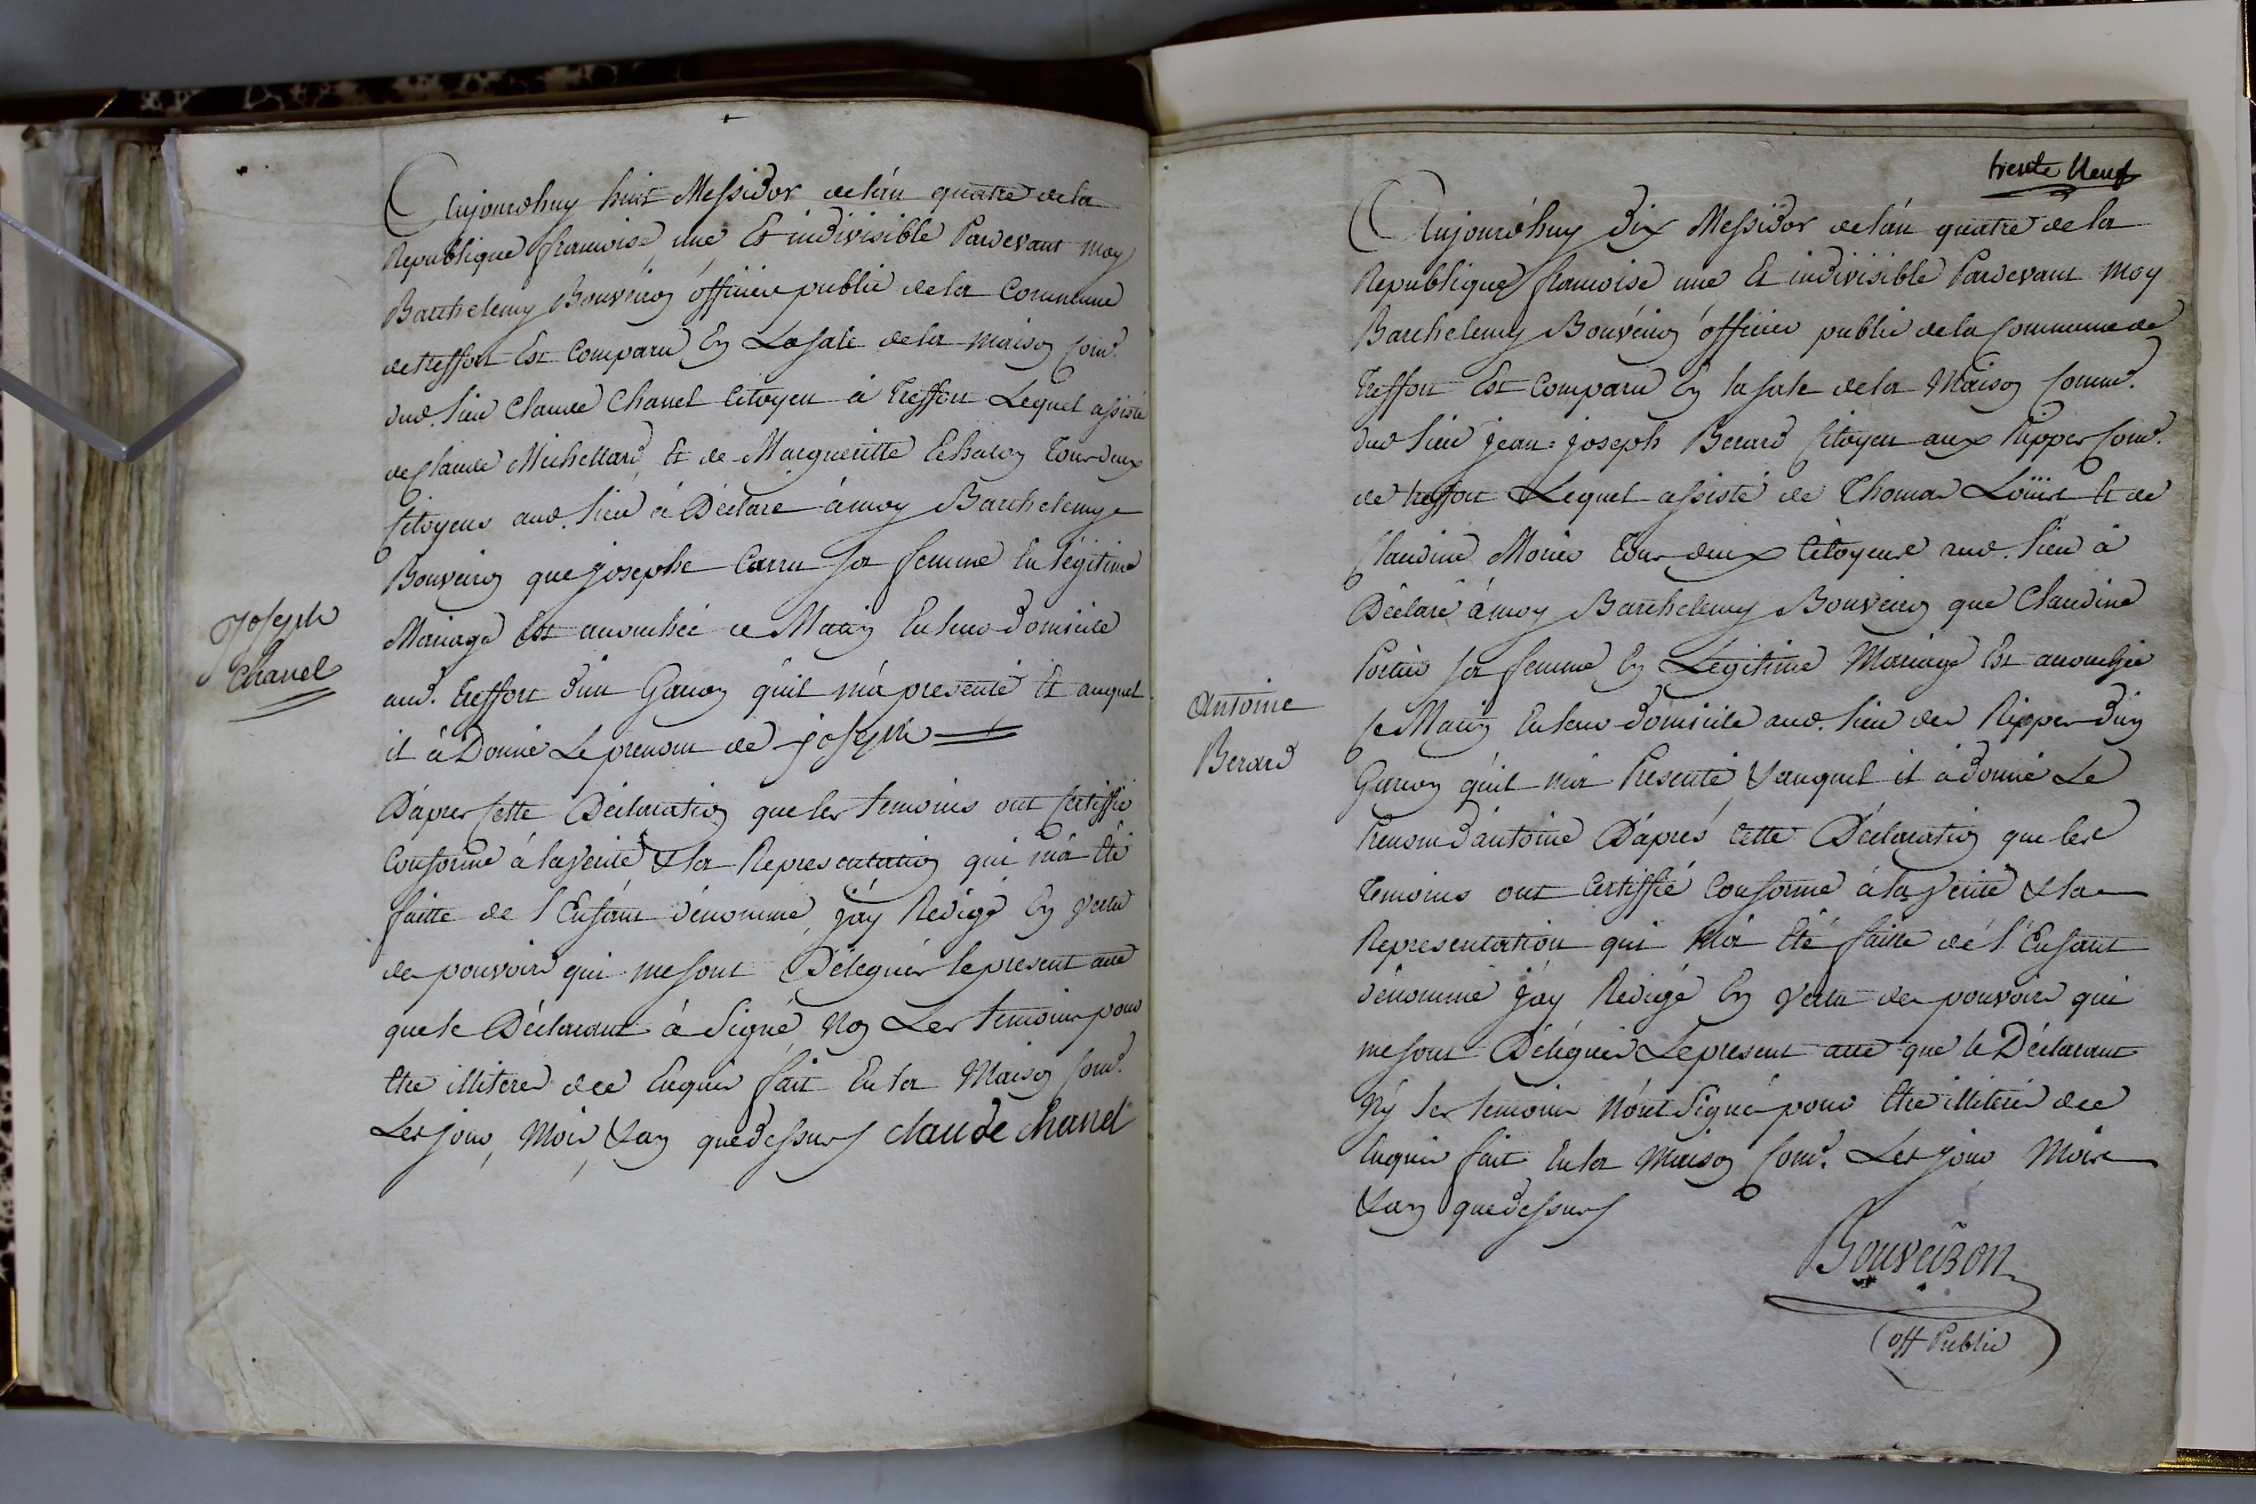 Aujourdhuy huit Messidor de lan quatre de la
Republique francoise une Et indivisible Pardevant moy
Barthelemy Bouveiron officier public de la Commune
de treffort Est Comparu En La sale de la maison Com.e
dud. lieu Claude Chanel Citoyen à Treffort Lequel assisté
de Claude Michellard Et de Margueritte Echalon Tour deux
Citoyens aud. lieu à Déclaré à moy Barthelemy
Bouveiron que josephe Carru sa femme En légitime
Mariage Est accouchée ce Matin En leur Domicile
aud. Treffort d'un Garcon qu'il m'a presenté Et auquel
il à Donné Le prenom de joseph
Joseph
Chanel
D'apres Cette Déclaration que les temoins ont Certiffié
Conforme à la Verité & la Representation qui m'a Eté
faitte de l'Enfant dénommé j'ay Redigé En Vertu
des pouvoirs qui me sont Délegués le present acte
que le Déclarant à Signé Non Les temoins pour
Etre illiteres de ce Enquis fait En la Maison Com.e
Les jour, Mois, & an que dessus claude chanel
trente Neuf
Aujourdhuy Dix Messidor de lan quatre de la
Republique francoise une Et indivisible Pardevant Moy
Barthelemy Bouveiron officier public de la Commune de
Treffort Est Comparu En la sale de la Maison Comm.e
dud lieu jean=joseph Berard Citoyen aux Rippes Com.e
de treffort Lequel assisté de Thomas Loüist Et de
Claudine Morier Tour deux Citoyens aud. lieu à
Déclaré à moy Barthelemy Bouveiron que Claudine
Poirier sa femme En Légitime Mariage Est accouchée
Ce Matin En leur Domicile aud. lieu des Rippes D'un
Garcon qu'il m'a Presenté & auquel il à donné Le
Prenom d'antoine D'après Cette Déclaration que les
Temoins ont Certiffié Conforme à la Verité & la
Representation qui M'a Eté faitte de l'Enfant
dénommé j'ay Redigé En Vertu des pouvoirs qui
me sont Délégués Le present acte que le Déclarant
Ny les temoins N'ont Signé pour Etre illiteres de ce
Enquis fait En la Maison Com.e Les jour Mois
& an que dessus
Antoine
Berard
Bouveiron
off Public